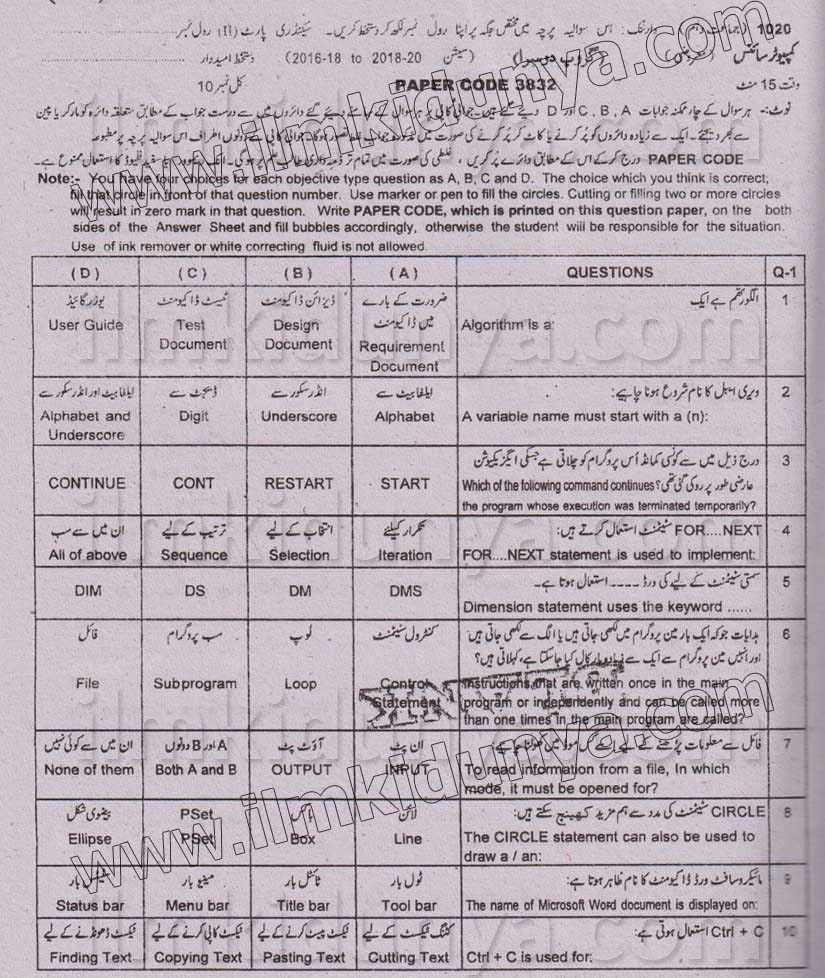 1020 (جماعت دہم) وارننگ: اس سوالیہ پرچہ میں مختص جگہ پر اپنا رول نمبر لکھ کر دستخط کریں۔ سیکنڈری پارٹ (II) رول نمبر
کمپیوٹر سائنس (معروضی) (گروپ دوسرا) (سیشن 2016-18 to 2018-20) دستخط امیدوار
وقت 15 منٹ PAPER CODE 3832 کل نمبر 10
نوٹ:- ہر سوال کے چار ممکنہ جوابات A ، B ، C اور D دیئے گئے ہیں۔ جوابی کاپی پر ہر سوال کے سامنے دیئے گئے دائروں میں سے درست جواب کے مطابق متعلقہ دائرہ کو مارکر یا پین
سے بھر دیجئے۔ ایک سے زیادہ دائروں کو پُر کرنے یا کاٹ کر پُر کرنے کی صورت میں مذکورہ جواب غلط تصور ہوگا۔ جوابی کاپی کے دونوں اطراف اس سوالیہ پرچہ پر مطبوعہ
PAPER CODE درج کر کے اس کے مطابق دائرے پُر کریں، غلطی کی صورت میں تمام تر ذمہ داری طالب علم پر ہوگی۔ انک ریموور یا سفید فلیوڈ کا استعمال ممنوع ہے۔
Note:- You have four choices for each objective type question as A, B, C and D. The choice which you think is correct;
fill that circle in front of that question number. Use marker or pen to fill the circles. Cutting or filling two or more circles
will result in zero mark in that question. Write PAPER CODE, which is printed on this question paper, on the both
sides of the Answer Sheet and fill bubbles accordingly, otherwise the student will be responsible for the situation.
Use of ink remover or white correcting fluid is not allowed.
(D) (C) (B) (A) QUESTIONS Q-1
یوزر گائیڈ ٹیسٹ ڈاکیومنٹ ڈیزائن ڈاکیومنٹ ضرورت کے بارے الگورتھم ہے ایک 1
میں ڈاکیومنٹ
User Guide Test Design Requirement Algorithm is a:
Document Document Document
ایلفابیٹ اور انڈرسکور سے ڈیجٹ سے انڈرسکور سے ایلفابیٹ سے ویری ایبل کا نام شروع ہونا چاہیے: 2
Alphabet and Digit Underscore Alphabet A variable name must start with a (n):
Underscore
درج ذیل میں سے کونسی کمانڈ اُس پروگرام کو چلاتی ہے جسکی ایگزیکیوشن 3
عارضی طور پر روکی گئی تھی؟
CONTINUE CONT RESTART START Which of the following command continues
the program whose execution was terminated temporarily?
ان میں سے سب ترتیب کے لیے انتخاب کے لیے تکرار کیلئے FOR....NEXT سٹیٹمنٹ استعمال کرتے ہیں: 4
All of above Sequence Selection Iteration FOR....NEXT statement is used to implement:
سمتی سٹیٹمنٹ کے لیے کی ورڈ ---- استعمال ہوتا ہے۔ 5
DIM DS DM DMS Dimension statement uses the keyword ......
فائل سب پروگرام لوپ کنٹرول سٹیٹمنٹ ہدایات جو کہ ایک بار مین پروگرام میں لکھی جاتی ہیں یا الگ سے لکھی جاتی ہیں 6
اور انہیں مین پروگرام سے ایک سے زیادہ بار کال کیا جا سکتا ہے، کہلاتی ہیں؟
File Subprogram Loop Control Statement Instructions that are written once in the main
program or independently and can be called more
than one times in the main program are called?
ان میں سے کوئی نہیں A اور B دونوں آؤٹ پٹ ان پٹ فائل سے معلومات پڑھنے کے لیے اسے کس موڈ میں کھولنا چاہیے؟ 7
None of them Both A and B OUTPUT INPUT To read information from a file, In which
mode, it must be opened for?
بیضوی شکل PSet باکس لائن CIRCLE سٹیٹمنٹ کی مدد سے ہم مزید کھینچ سکتے ہیں: 8
Ellipse PSet Box Line The CIRCLE statement can also be used to
draw a / an:
سٹیٹس بار مینیو بار ٹائٹل بار ٹول بار مائیکروسافٹ ورڈ ڈاکیومنٹ کا نام ظاہر ہوتا ہے: 9
Status bar Menu bar Title bar Tool bar The name of Microsoft Word document is displayed on:
ٹیکسٹ ڈھونڈنے کے لیے ٹیکسٹ کاپی کرنے کے لیے ٹیکسٹ پیسٹ کرنے کے لیے کٹنگ ٹیکسٹ کے لیے Ctrl + C استعمال ہوتی ہے: 10
Finding Text Copying Text Pasting Text Cutting Text Ctrl + C is used for:
www.ilmkidunya.com
www.ilmkidunya.com
ilmkidunya.com
ilmkidunya.com
ilmkidunya.com
ilmkidunya.com
ilmkidunya.com